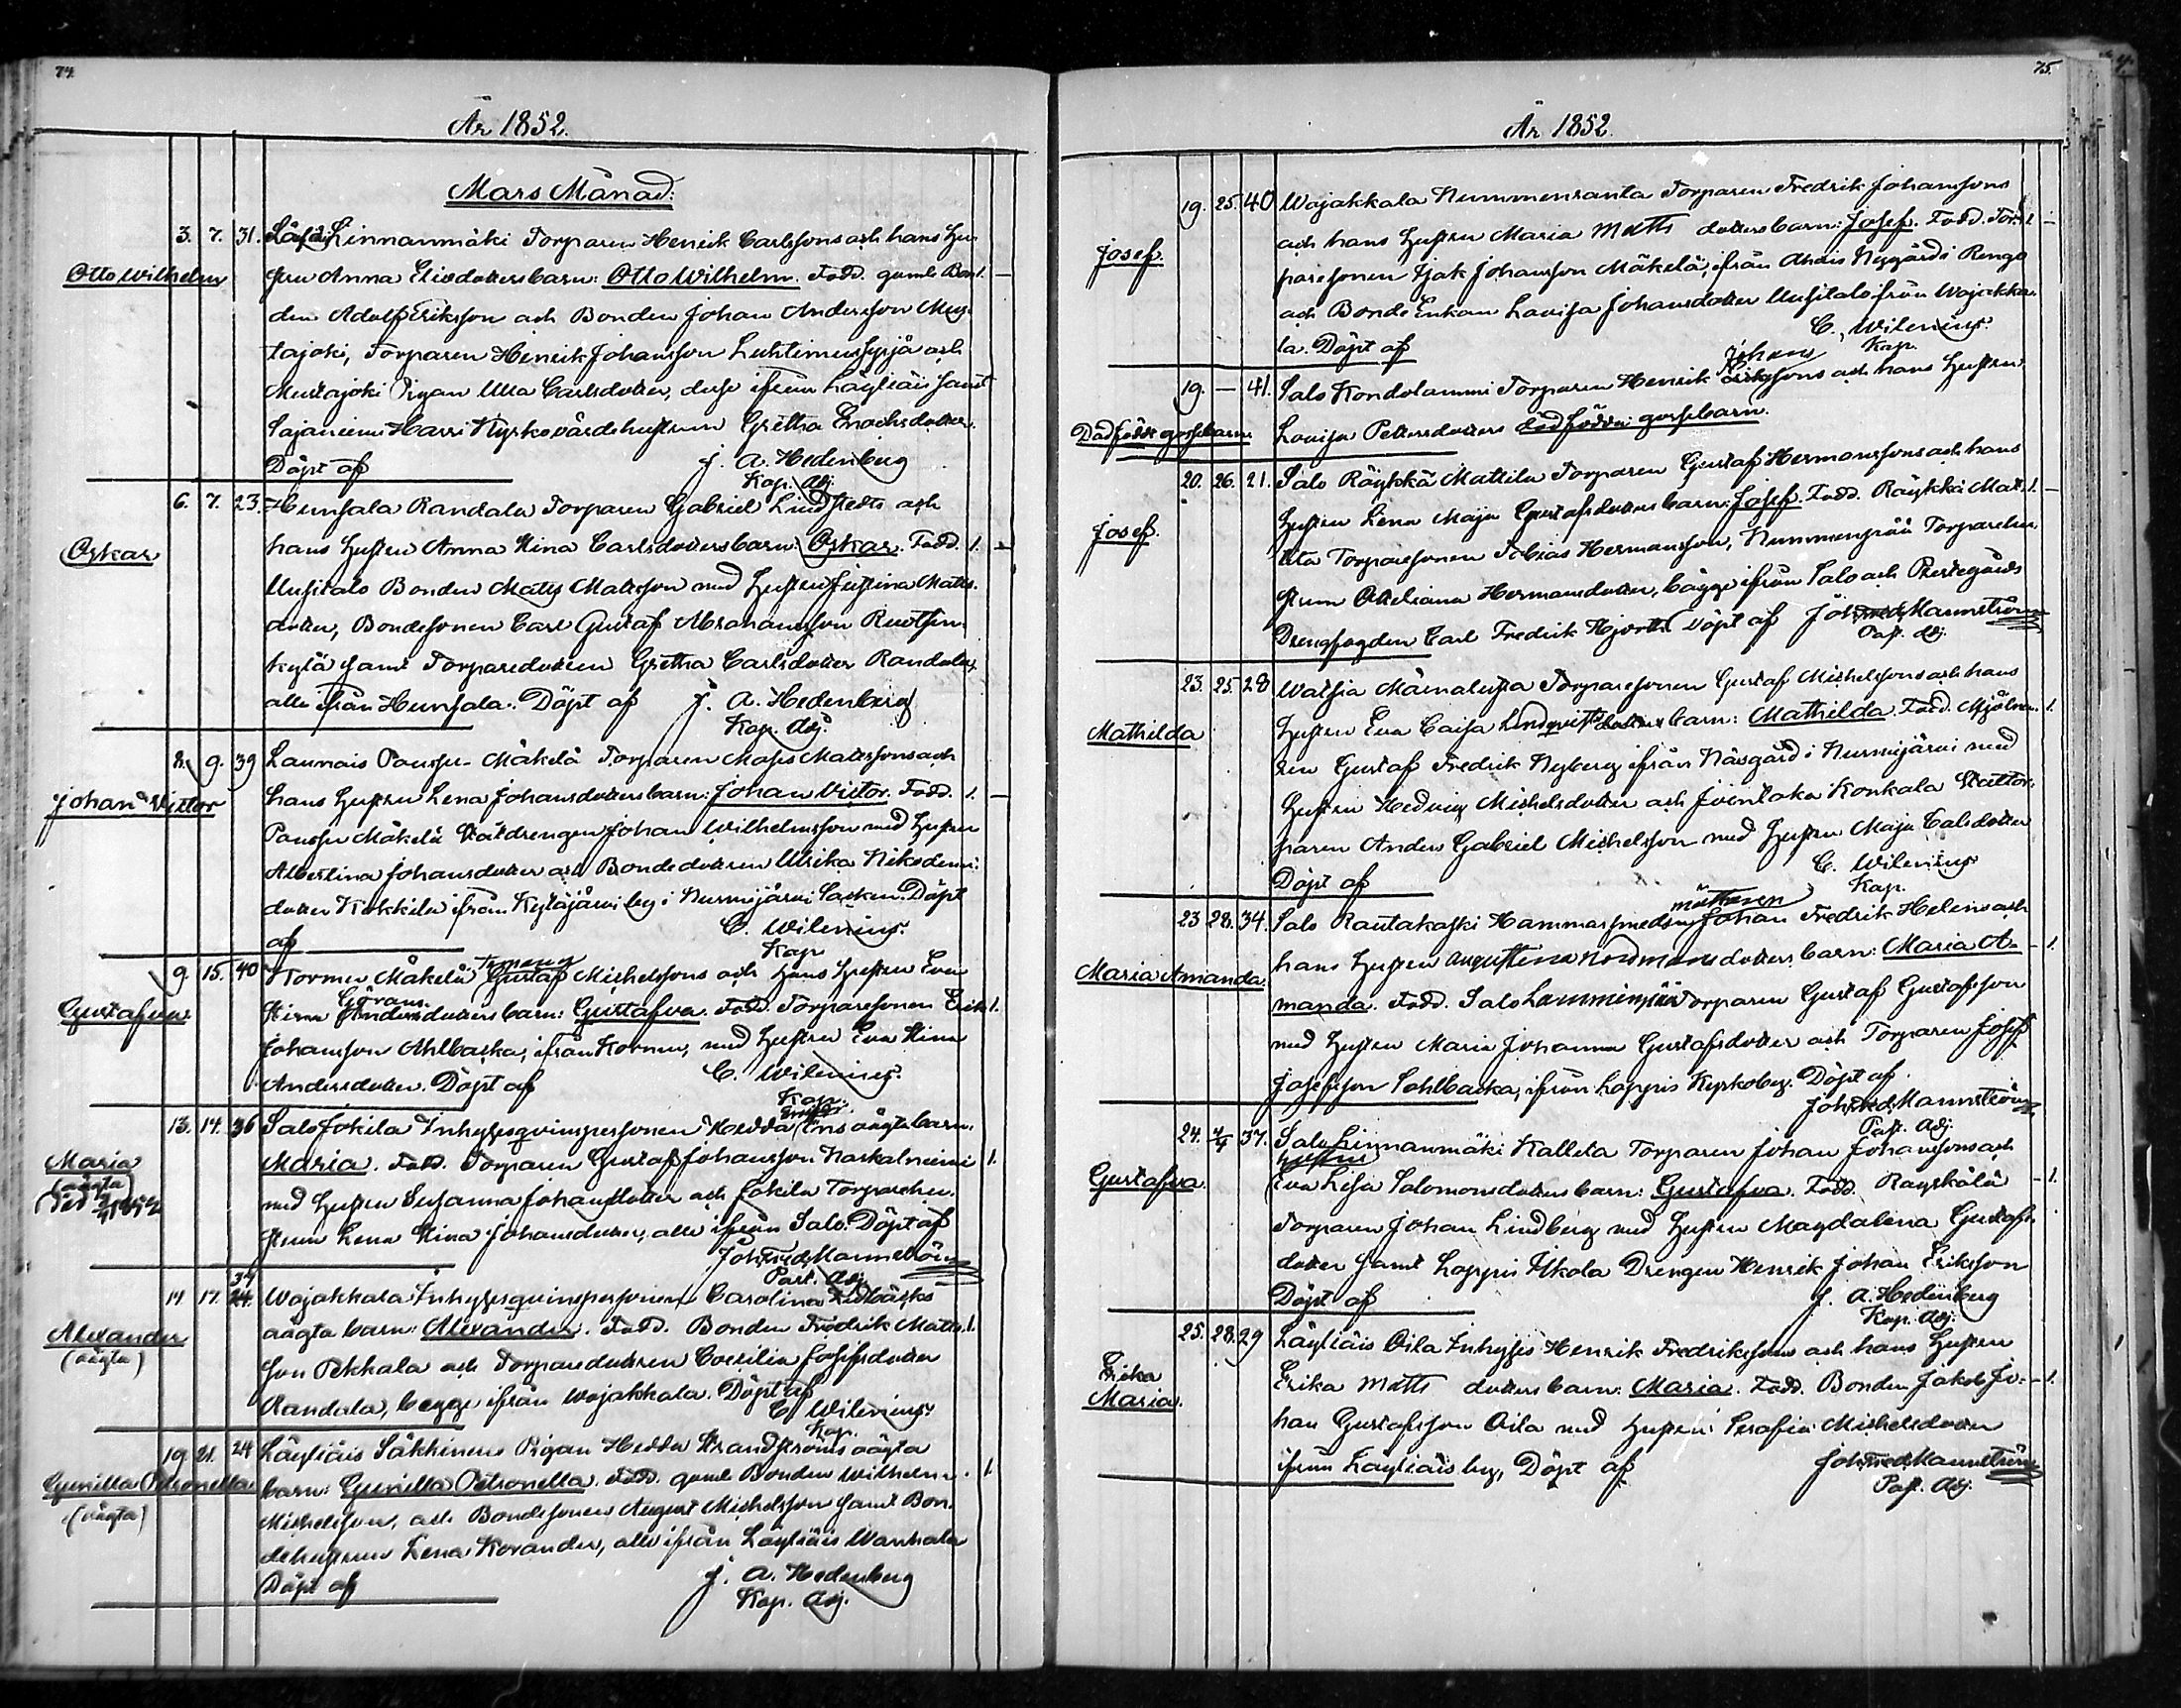 74.
År 1852.
Mars Månad:
3. 7. 31. Linnanmäki Torparen Henrik Carlssons och hans Hu-
Otto Wilhelm
strus Anna Eliædotters barn: Otto Wilhelm. Fadd. gamle Bon- 1. —
den Adolf Eriksson och Bonden Johan Andersson Mus-
tajoki, Torparen Henrik Johansson Luhtimus och
Mustajoki Pigan Ulla Carlsdotter, desse ifrån Läyliäis samt
Sajaniemi Harri Kyrkovärdshustrun Gretha Enochsdotter.
Döpt af J. A. Hedenberg
Kap. Adj.
6. 7. 23. Hunsala Randala Torparen Gabriel Lindstedts och
Oskar
hans Hustru Anna Stina Carlsdotters barn: Oskar. Fadd. 1. —
Uusitalo Bonden Matts Mattsson med Hustru Justina Matts-
dotter, Bondesonen Carl Gustaf Abrahamsson Ruotsin-
kylä samt Torparedottren Gretha Carlsdotter Randala,
alla ifrån Hunsala. Döpt af J. A. Hedenberg
Kap. Adj.
8. 9. 39 Launois Paussu-Mäkelä Torparen Moses Matssons och
Johan Victor
hans Hustru Lena Johansdotters barn: Johan Victor. Fadd. 1. —
Paussu Mäkelä Statdrengen Johan Wilhelmsson med Hustru
Albertina Johansdotter och Bondedottren Ulrika Nikodemi-
dotter Kokkila ifrån Kytäjärvi by i Nurmijärvi Socken. Döpt
af C. Wilenius.
Kap
9. 15. 40 Kormu Mäkelä Gustaf Michelssons och hans Hustru Eva
Gustafva
Görans
Stina Andersdotters barn: Gustafva. Fadd. Torparesonen Erik 1.
Johansson Ahlbacka, ifrån Kormu, med Hustru Eva Stina
Andersdotter. Döpt af C. Wilenius.
Kap.
13. 14. 36 Salo Jokila Inhysesqvinspersonen Hedda oägta barn.
Maria
(oägta)
Maria. Fadd. Torparen Gustaf Johansson Naskalniemi 1.
med Hustru Susanna Johansdotter och Jokila Torparehu-
strun Lena Stina Johansdotter, alla ifrån Salo. Döpt af
Joh. Fred. Mannström
Past. Adj.
34
14 17. 24. Wojakkala Inhysesqvinspersonen Carolina
Alexander
(oägta)
oägta barn: Alexander. Fadd. Bonden Fredrik Matts- 1.
son Pekkala och Torparedottren Coecilia Josefsdotter
Randala, begge ifrån Wojakkala. Döpt af
C. Wilenius.
Kap.
19 21. 24 Läyliäis Säkkinens Pigan Hedda Strandströms oägta
Gunilla Petronella
(oägta)
barn: Gunilla Petronella. Fadd. gamle Bonden Wilhelm 1.
Michelsson, och Bondesonen August Michelsson samt Bon-
dehustrun Lena Korander, alla ifrån Läyliäis Wanhala
Döpt af J. A. Hedenberg
Kap. Adj.
75.
År 1852
19. 25. 40 Wojakkala Nummenranta Torparen Fredrik Johanssons
Josef.
och hans Hustru Maria Matts dotters barn: Josef. Fadd. Tor- 1 —
paresonen Isak Johansson Mäkelä, ifrån Ahois Nygård i Rengo
och Bonde Enkan Lovisa Johansdotter Uusitalo från Wojakka-
la. Döpt af C. Wilenius.
Kap.
Johans
19. — 41. Salo Kondolammi Torparen Henrik Erikssons och hans Hustru
Dödfödt gossebarn.
Lovisa Pettersdotters dödfödda gossebarn.
20. 26. 21. Salo Räykkä Mattila Torparen Gustaf Hermanssons och hans
Josef.
Hustru Lena Maja Gustafsdotters barn: Josef. Fadd. Räykkä Mat- 1. —
tila Torparesonen Tobias Hermansson, Nummenpää Torparehu-
strun Hermansdotter, bägge ifrån Salo och Prestegårds
Drengfogden Carl Fredrik Hjorth. Döpt af Joh. Fred. Mannström
Past. Adj.
23. 25. 28 Watsia Mäenalusta Torparesonen Gustaf Michelssons och hans
Mathilda
Hustru Eva Caisa Lindqvists barn: Mathilda. Fadd. Mjölna- 1.
ren Gustaf Fredrik Nyberg ifrån Näsgård i Nurmijärvi med
Hustru Hedvig Michelsdotter och Joentaka Konkala Stattor-
paren Anders Gabriel Michelsson med Hustru Maja Calsdotter
Döpt af C. Wilenius
Kap.
mästaren
23 28. 34. Salo Rautakoski Hammarsmeds Johan Fredrik Helens och
Maria Amanda.
hans Hustru Augustina Nordmans dotters barn: Maria A- — 1.
manda. Fadd. Salo Lamminpää Torparen Gustaf Gustafsson
med Hustru Maria Johanna Gustafsdotter och Torparen Josef
Josefsson Sahlbacka, ifrån Loppis Kyrkoby. Döpt af
Joh. Fred. Mannström
Past. Adj.
24. 4/4 37. Salo Linnanmäki Kalleta Torparen Johan Johanssons och
Gustafva.
hustrus
Eva Lisa Salomonsdotters barn: Gustafva. Fadd. Räyskälä — 1.
Torparen Johan Lindberg med Hustru Magdalena Gustafs-
dotter samt Loppis Ukola Drengen Henrik Johan Eriksson
Döpt af J. A. Hedenberg
Kap. Adj.
25. 28. 29 Läyliäis Oila Inhyses Henrik Fredrikssons och hans Hustru
Erika
Maria.
Erika Matts dotters barn: Maria. Fadd. Bonden Jakob Jo- — 1.
han Gustafsson Oila med Hustru Serafia Michelsdotter
ifrån Läyliäis by, Döpt af Joh. Fred. Mannström
Past. Adj.